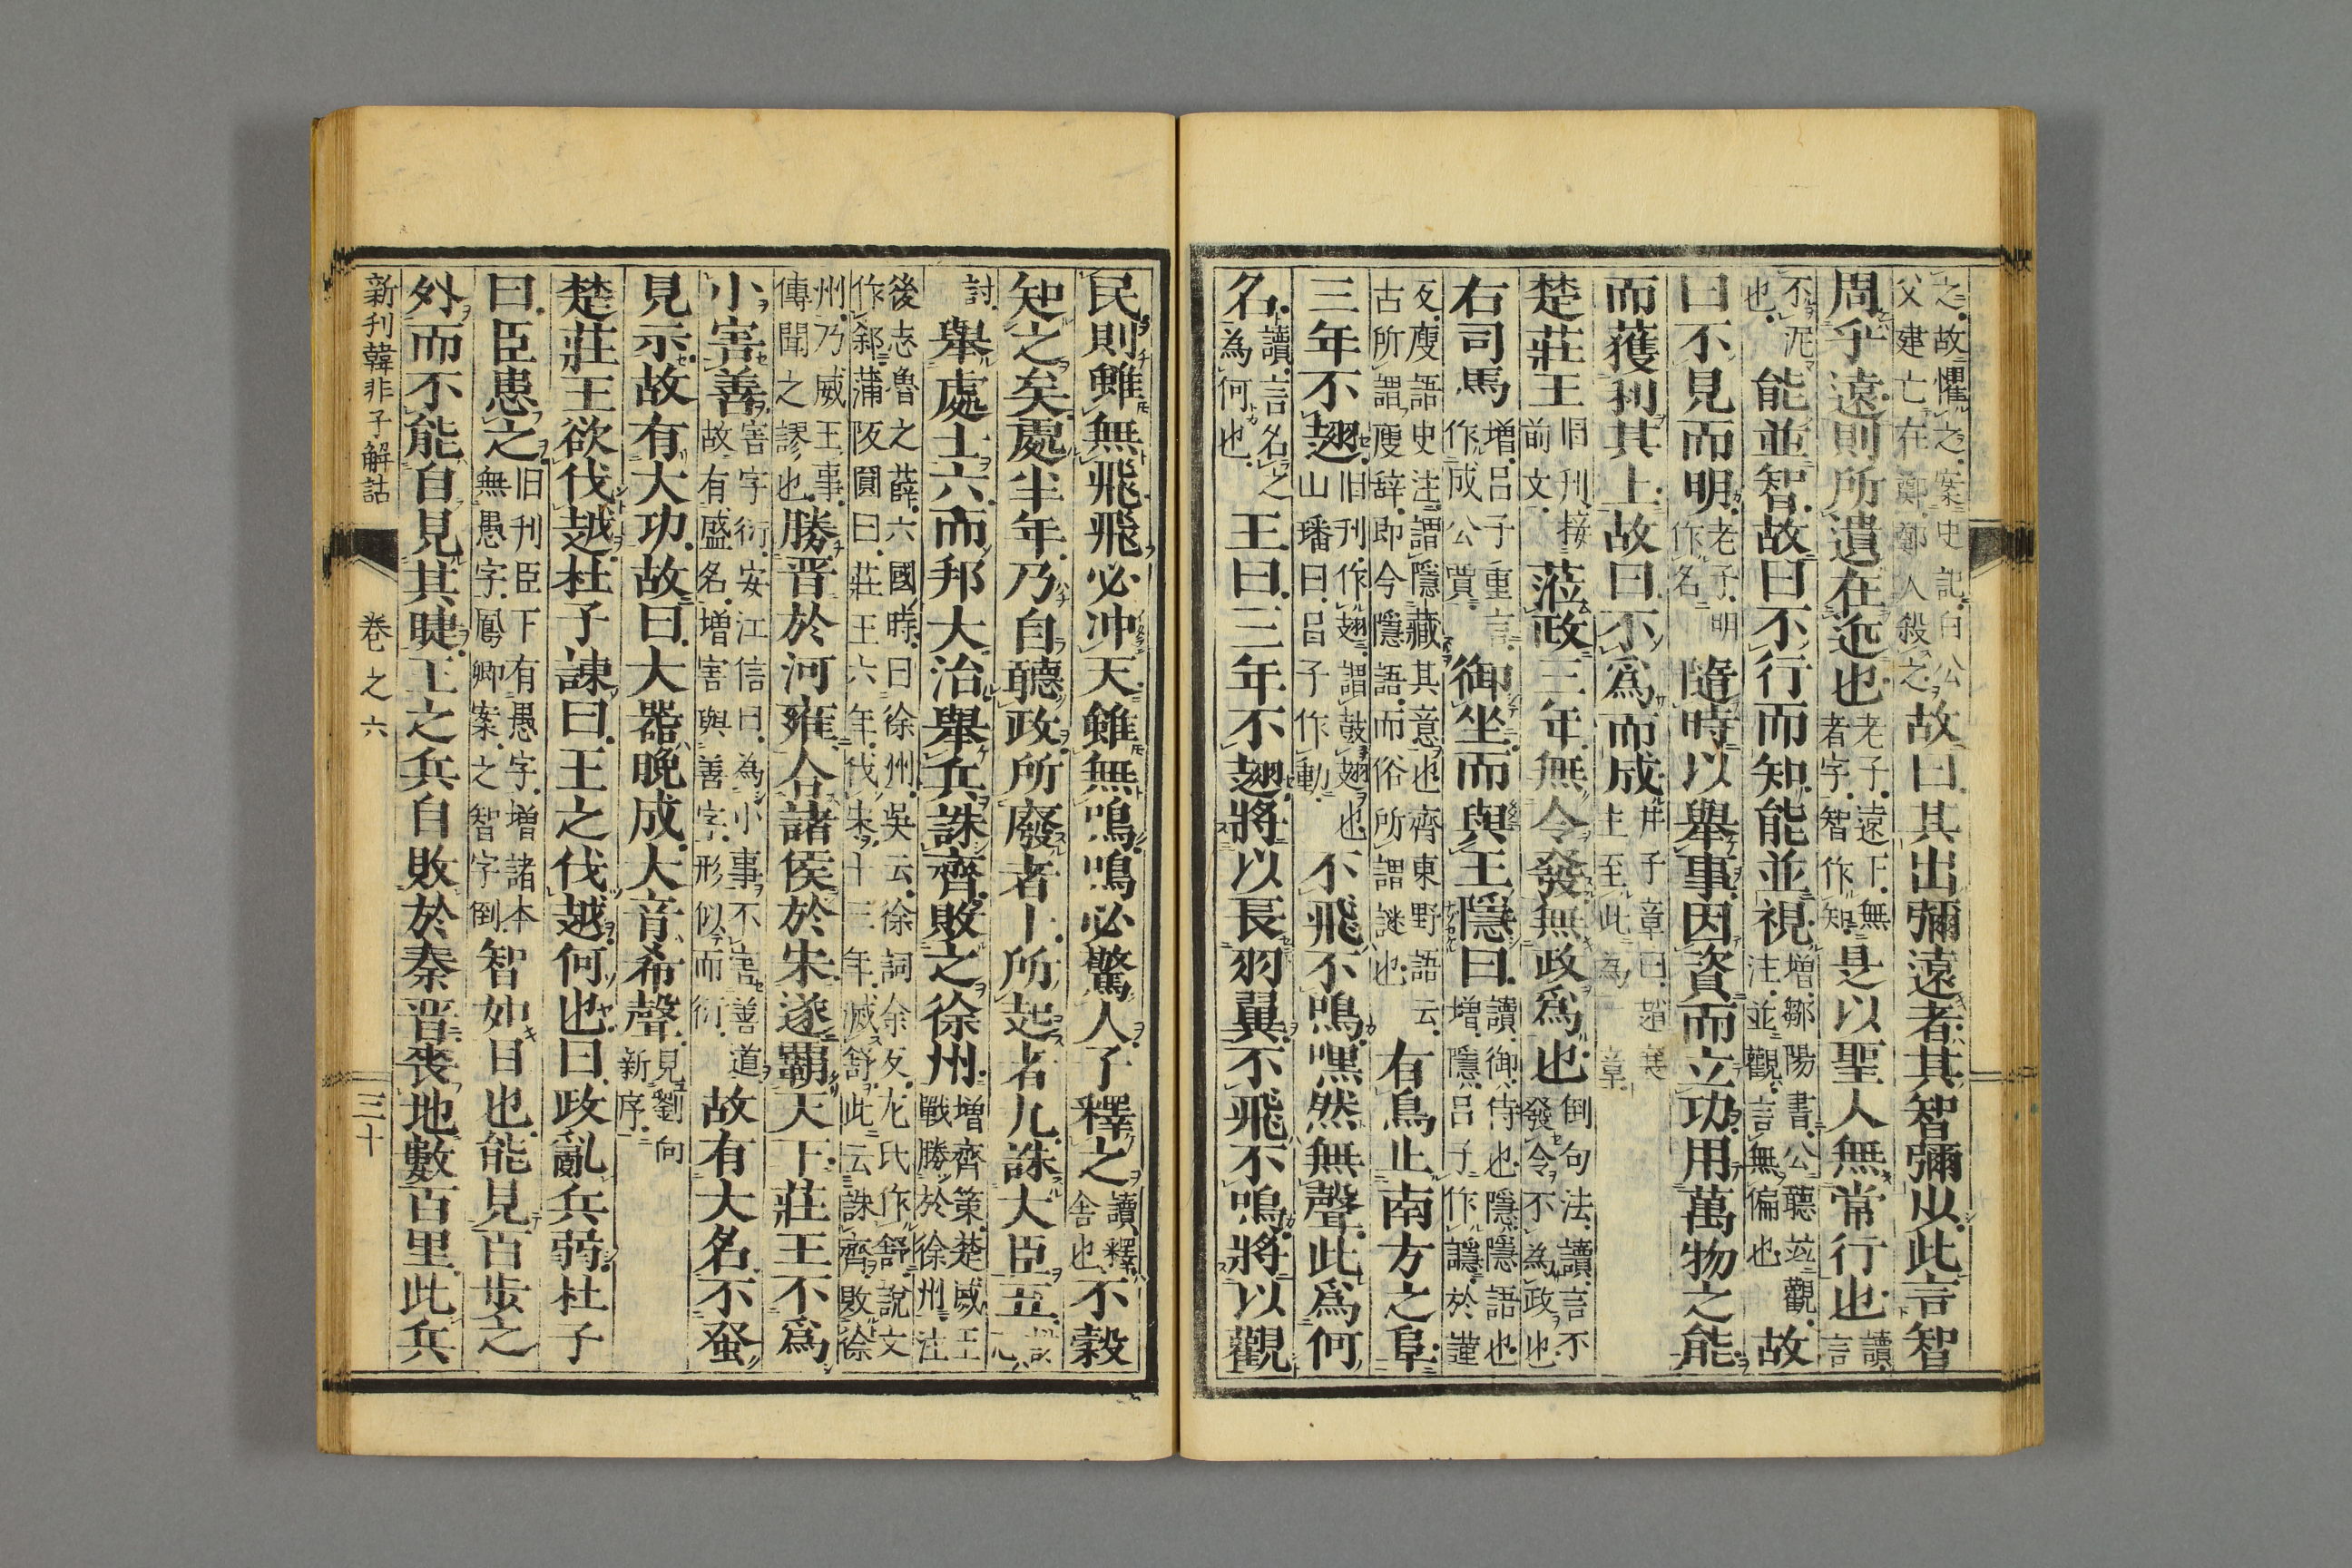 之故懼之案史記白公
父建亡在鄭鄭人殺之故曰其出彌遠者其智彌少此言智
周乎遠則所遺在近也老子遠下無者字智作知是以聖人無常行也讀言
不泥也能並智故曰不行而知能並視增鄒陽書公聽並觀注並觀言無偏也故
曰不見而明老子明作名隨時以舉事因資而立功用萬物之能
而獲利其上故曰不爲而成井子章曰趙襄主至此為一章
楚莊王旧刋接前文莅政三年無令發無政爲也倒句法讀言不發令不為政也
右司馬增呂子重言作成公賈御坐而與王隱曰讀御侍也隱隱語也增隱呂子作讔於謹
反廋語史注謂隱藏其意也齊東野語云古所謂廋辞即今隱語而俗所謂謎也有鳥止南方之阜
三年不翅旧刋作翅謂鼓翅也山璠曰呂子作動不飛不鳴嘿然無聲此爲何
名讀言名之為何也王曰三年不翅將以長羽翼不飛不鳴將以觀
民則雖無飛飛必冲天雖無鳴鳴必驚人子釋之讀釋舍也不穀
知之矣處半年乃自聽政所廢者十所起者九誅大臣五
討舉處士六而邦大治舉兵誅齊敗之徐州增齊策楚威王戰勝於徐州注
後志魯之薛六國時曰徐州吳云徐詞余反尤氏作舒說文作䣄蒲阪圓曰莊王六年伐朱十三年滅舒此云誅齊敗徐
州乃威王事傳聞之謬也勝晋於河雍合諸侯於宋遂覇天下莊王不爲
小害善害字衍安江信曰為小事不害善道故有盛名增害與善字形似而衍故有大名不蚤
見示故有大功故曰大器晩成大音希聲見劉向新序
楚莊王欲伐越杜子諫曰王之伐越何也曰政亂兵弱杜子
曰臣患之旧刋臣下有愚字增諸本無愚字鳳卿案之智字倒智如目也能見百步之
外而不能自見其睫王之兵自敗於秦晋喪地數百里此兵
新刋韓非子解詁　卷之六　三十